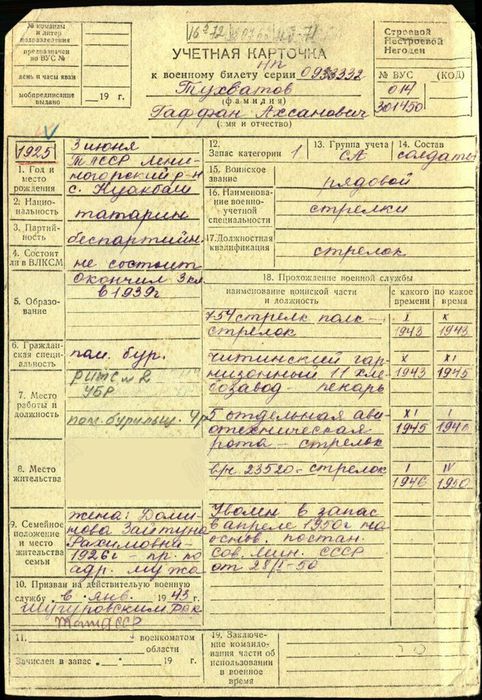 № команды
и литер
подразделения
предназначен
по ВУС №
день и часы явки
мобпредписание
выдано
19 г.
УЧЕТНАЯ КАРТОЧКА
к военному билету серии НП 0933332
Тухватов
(фамилия)
Гаффан Ахсанович
(имя и отчество)
Строевой
Нестроевой
Негоден
№ ВУС (КОД)
014
301450
1925
1. Год и
место
рождения
3 июня
ТАССР Лени-
ногорский р-н
с. Куакбаш
2. Наци-
ональность
татарин
3. Партий-
ность
беспартийн.
4. Состоит
ли в ВЛКСМ
не состоит
5. Образо-
вание
Окончил 3 кл
в 1939г
6. Гражданская
специ-
альность
пом. бур.
7. Место
работы и
должность
УБР
пом. бурильщ.
8. Место
жительства
9. Семейное
положение
и место
жительства
семьи
жена:
Зайтуна
Рахимовна
1926г - пр. по
адр. мужа
10. Призван на действительную военную
службу в янв. 1943 г.
Шугуровским РВК
ТатАССР
11. военкоматом
области
Зачислен в запас 19 г.
12.
Запас категории 1
13. Группа учета
СА
14. Состав
солдаты
15. Воинское
звание
рядовой
16. Наименование
военно-
учетной
специальности
стрелки
17. Должностная
квалификация
стрелок
18. Прохождение военной службы
наименование воинской части
и должность
с какого
времени
по какое
время
754 стрелк полк -
стрелок
X
1943
X
1943
читинский гар-
низонный 11 хле-
бозавод - пекарь
X
1943
XI
1945
5 отдельная ави
отехническая
рота - стрелок
XI
1945
I
в/ч 23520 - стрелок
I
1946
IV
1950
Уволен в запас
в апреле 1950г на
основ. постан.
Сов. мин. СССР
от 28/I-50
19. Заключение
командо-
вания части об
использовании
в военное
время